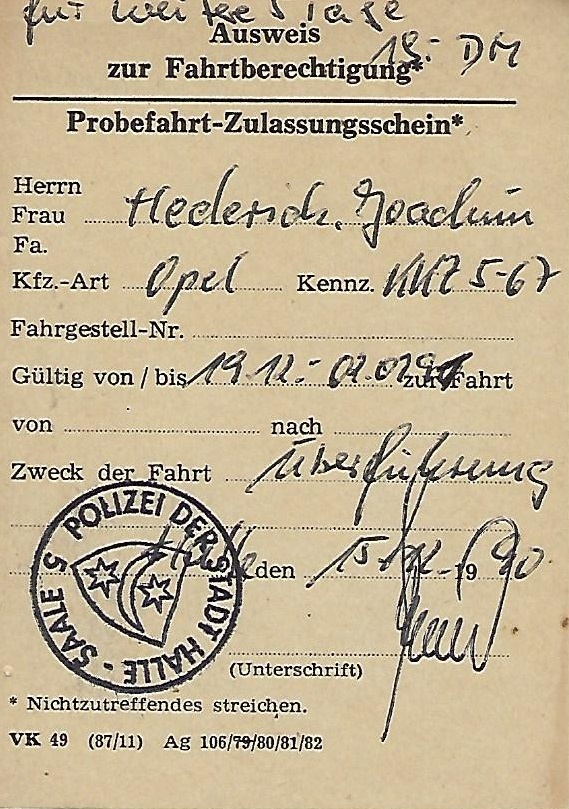 für weitere 5 Tage
Ausweis 18.- DM
zur Fahrtberechtigung*
Probefahrt-Zulassungsschein*
Herrn
Frau Hederich, Joachim
Fa.
Kfz.-Art Opel Kennz. KKZ 5-67
Fahrgestell-Nr.
Gültig von / bis 19.12.- 02.01.91 zur Fahrt
von nach
Zweck der Fahrt Überführung
Halle den 15.12. 19 90
POLIZEI DER STADT HALLE - SAALE 5
(Unterschrift)
* Nichtzutreffendes streichen.
VK 49 (87/11) Ag 106/79/80/81/82